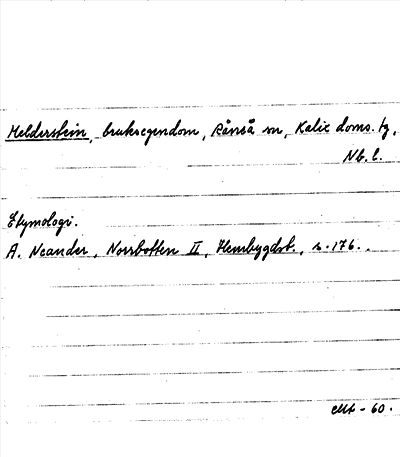 Melderstein, bruksegendom, Råneå sn, Kalix doms. tg,
Nb. l.
Etymologi.
A. Neander, Norrbotten II, Hembygdsb., s. 176.
-60.